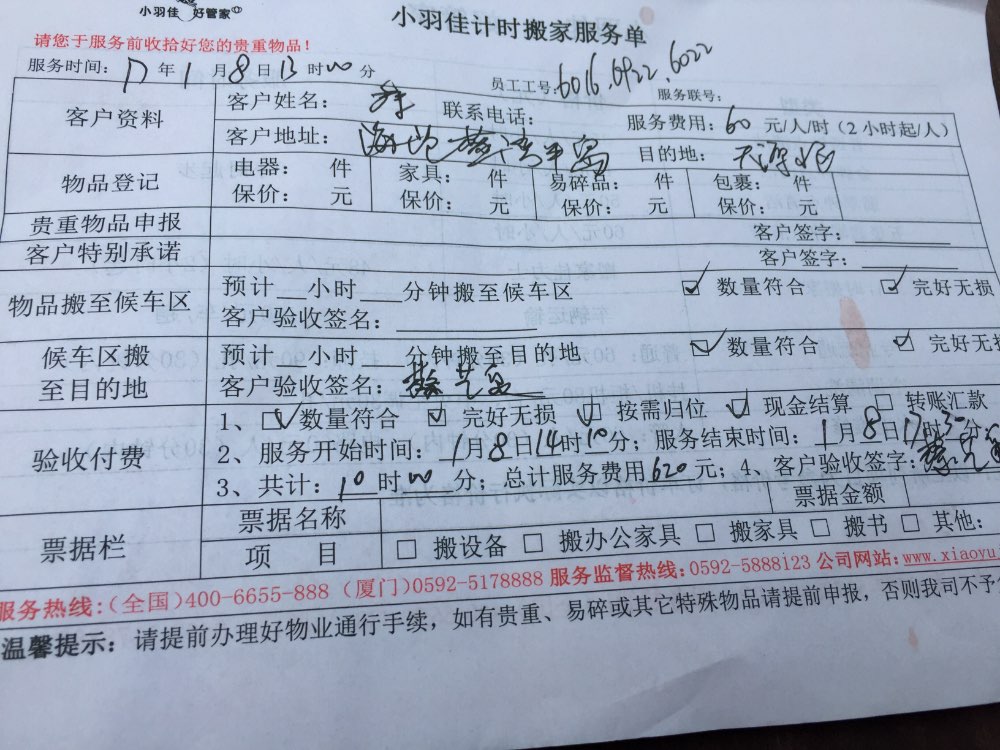 小羽佳 好管家
小羽佳计时搬家服务单
请您于服务前收拾好您的贵重物品！
服务时间：17年1月8日13时00分 员工工号：6016、6922、6022 服务联号：
客户资料 客户姓名： 联系电话： 服务费用：60元/人/时（2小时起/人）
客户地址： 目的地：
物品登记 电器： 件 家具： 件 易碎品： 件 包裹： 件
保价： 元 保价： 元 保价： 元 保价： 元
贵重物品申报 客户签字：
客户特别承诺 客户签字：
物品搬至候车区 预计__小时___分钟搬至候车区 ☑ 数量符合 ☑ 完好无损
客户验收签名：
候车区搬至目的地 预计__小时___分钟搬至目的地 ☑ 数量符合 ☑ 完好无损
客户验收签名：
验收付费 1、☑数量符合 ☑ 完好无损 ☑ 按需归位 ☑ 现金结算 □ 转账汇款
2、服务开始时间：1月8日14时10分；服务结束时间：1月8日17时30分
3、共计：10时00分；总计服务费用620元；4、客户验收签字：
票据栏 票据名称 票据金额
项 目 □ 搬设备 □ 搬办公家具 □ 搬家具 □ 搬书 □ 其他：
服务热线：（全国）400-6655-888（厦门）0592-5178888 服务监督热线：0592-5888123 公司网站：www.xiaoyu
温馨提示：请提前办理好物业通行手续，如有贵重、易碎或其它特殊物品请提前申报，否则我司不予